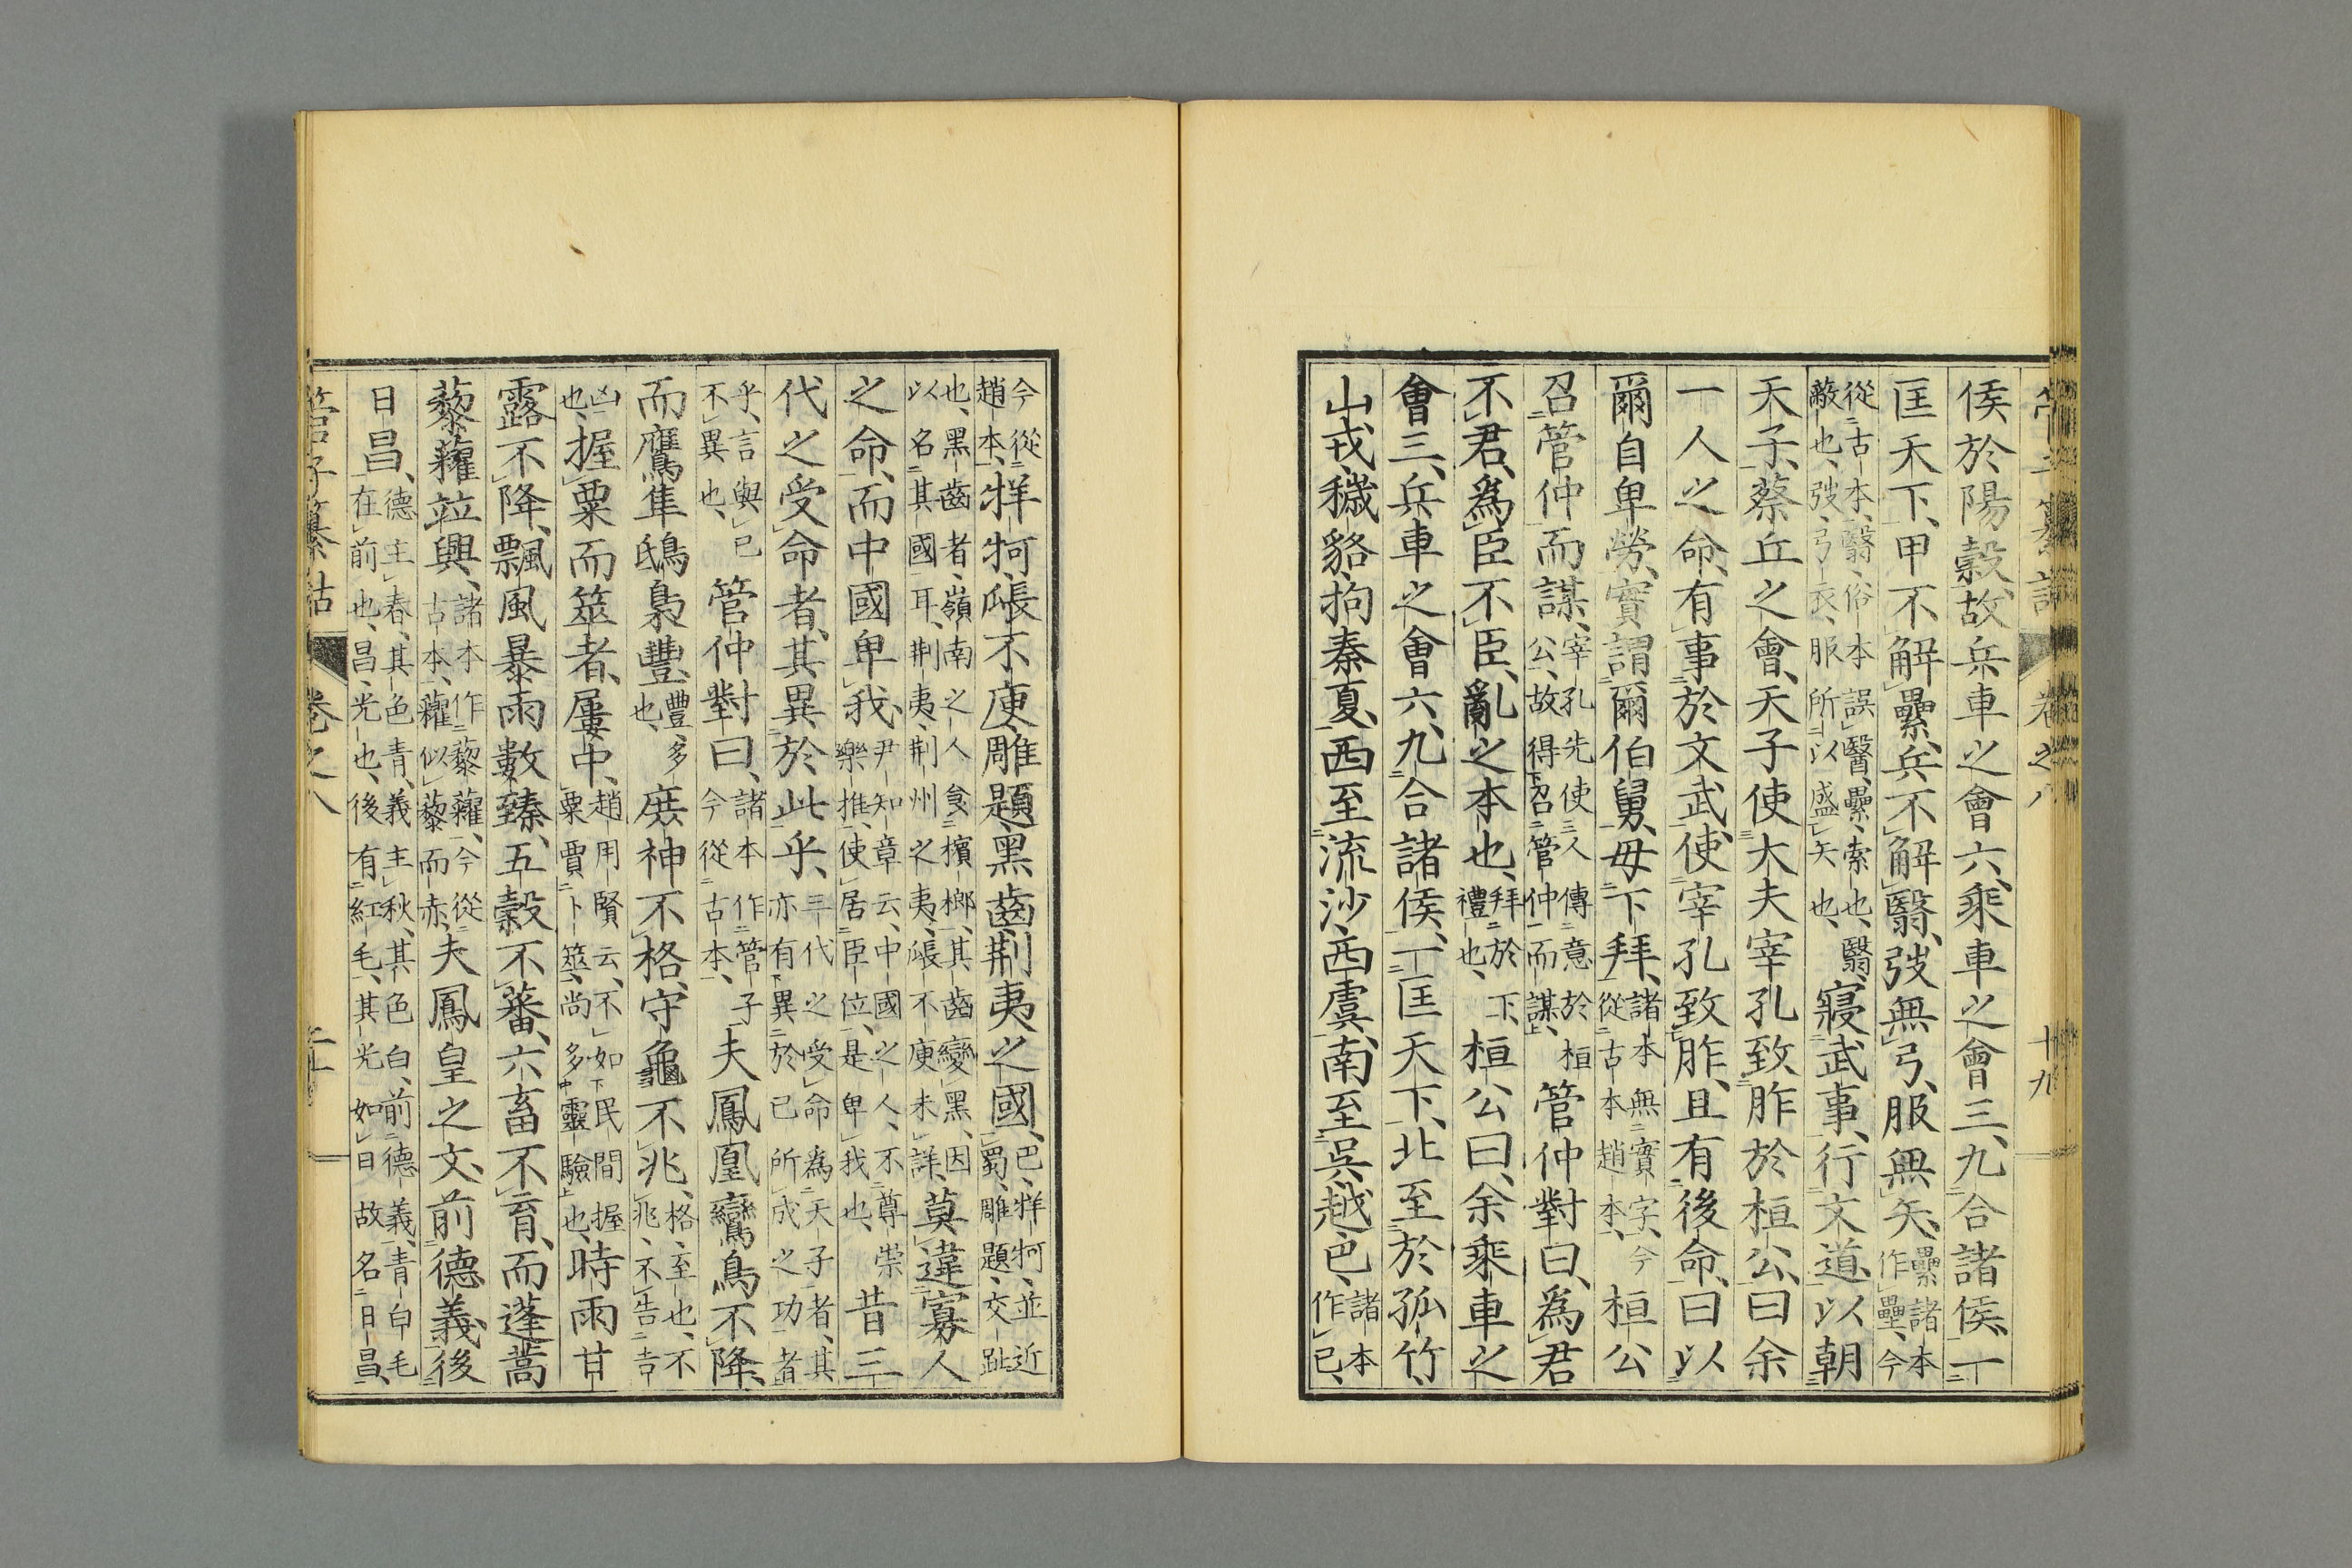 侯於陽穀、故兵車之會六、乘車之會三、九合諸侯、一
匡天下、甲不解纍、兵不解翳、弢無弓、服無矢、纍諸本作壘、今
從古本、翳、俗本誤醫、纍、索也、翳、蔽也、弢、弓衣、服、所以盛矢也、寢武事、行文道、以朝
天子、蔡丘之會、天子使大夫宰孔致胙於桓公、曰余
一人之命、有事於文武、使宰孔致胙、且有後命、曰以
爾自卑勞、實謂爾伯舅、毋下拜、諸本無實字、今從古本趙本、桓公
召管仲而謀、宰孔先使人傳意於桓公、故得召管仲而謀、管仲對曰、為君
不君、為臣不臣、亂之本也、拜於下、禮也、桓公曰、余乘車之
會三、兵車之會六、九合諸侯、一匡天下、北至於孤竹、
山戎、穢貉、拘秦夏、西至流沙、西虞、南至吳越巴、諸本作已、
今從趙本、牂牁、𠼪不庾、雕題、黑齒、荆夷之國、巴、牂牁、並近蜀、雕題、交趾
也、黑齒者、嶺南之人食檳榔、其齒變黑、因以名其國耳、荆夷、荆州之夷、𠼪不庾未詳、莫違寡人
之命、而中國卑我、尹知章云、中國之人、不尊崇樂推、使居臣位、是卑我也、昔三
代之受命者、其異於此乎、三代之受命為天子者、其亦有異於已所成之功者
乎、言與已不異也、管仲對曰、諸本作管子、今從古本、夫鳳凰鸞鳥不降、
而鷹隼鴟梟豐、豐、多也、庶神不格、守龜不兆、格、至也、不兆、不告吉
凶也、握粟而筮者、屢中、趙用賢云、不如民間握粟賈卜筮、尚多靈驗也、時雨甘
露不降、飄風暴雨數臻、五穀不蕃、六畜不育、而蓬蒿
藜藋竝興、諸本作藜藋、今從古本、藋似藜而赤、夫鳳皇之文、前德義、後
日昌、德主春、其色青、義主秋、其色白、前德義、青白毛在前也、昌、光也、後有紅毛、其光如日故名日昌、